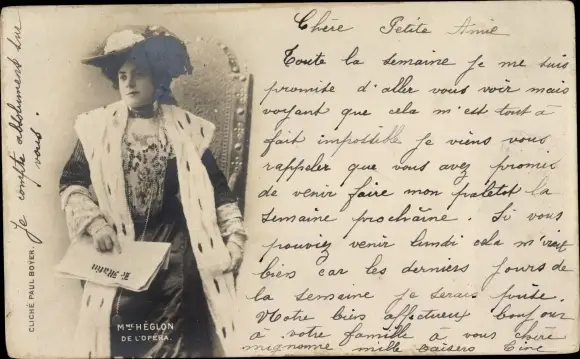 Chère Petite Amie
Toute la semaine je me suis
promise d'aller vous voir mais
voyant que cela m'est tout à
fait impossible je viens vous
rappeler que vous avez promis
de venir faire mon paletot la
semaine prochaine. Si vous
pouviez venir lundi cela m'irait
bien car les derniers jours de
la semaine je serais prise.
Votre bien affectueux bonjour
à votre famille à vous chère
mignonne mille baisers
Je compte absolument sur
vous.
CLICHÉ PAUL BOYER.
Le Matin
MME HÉGLON
DE L'OPÉRA.